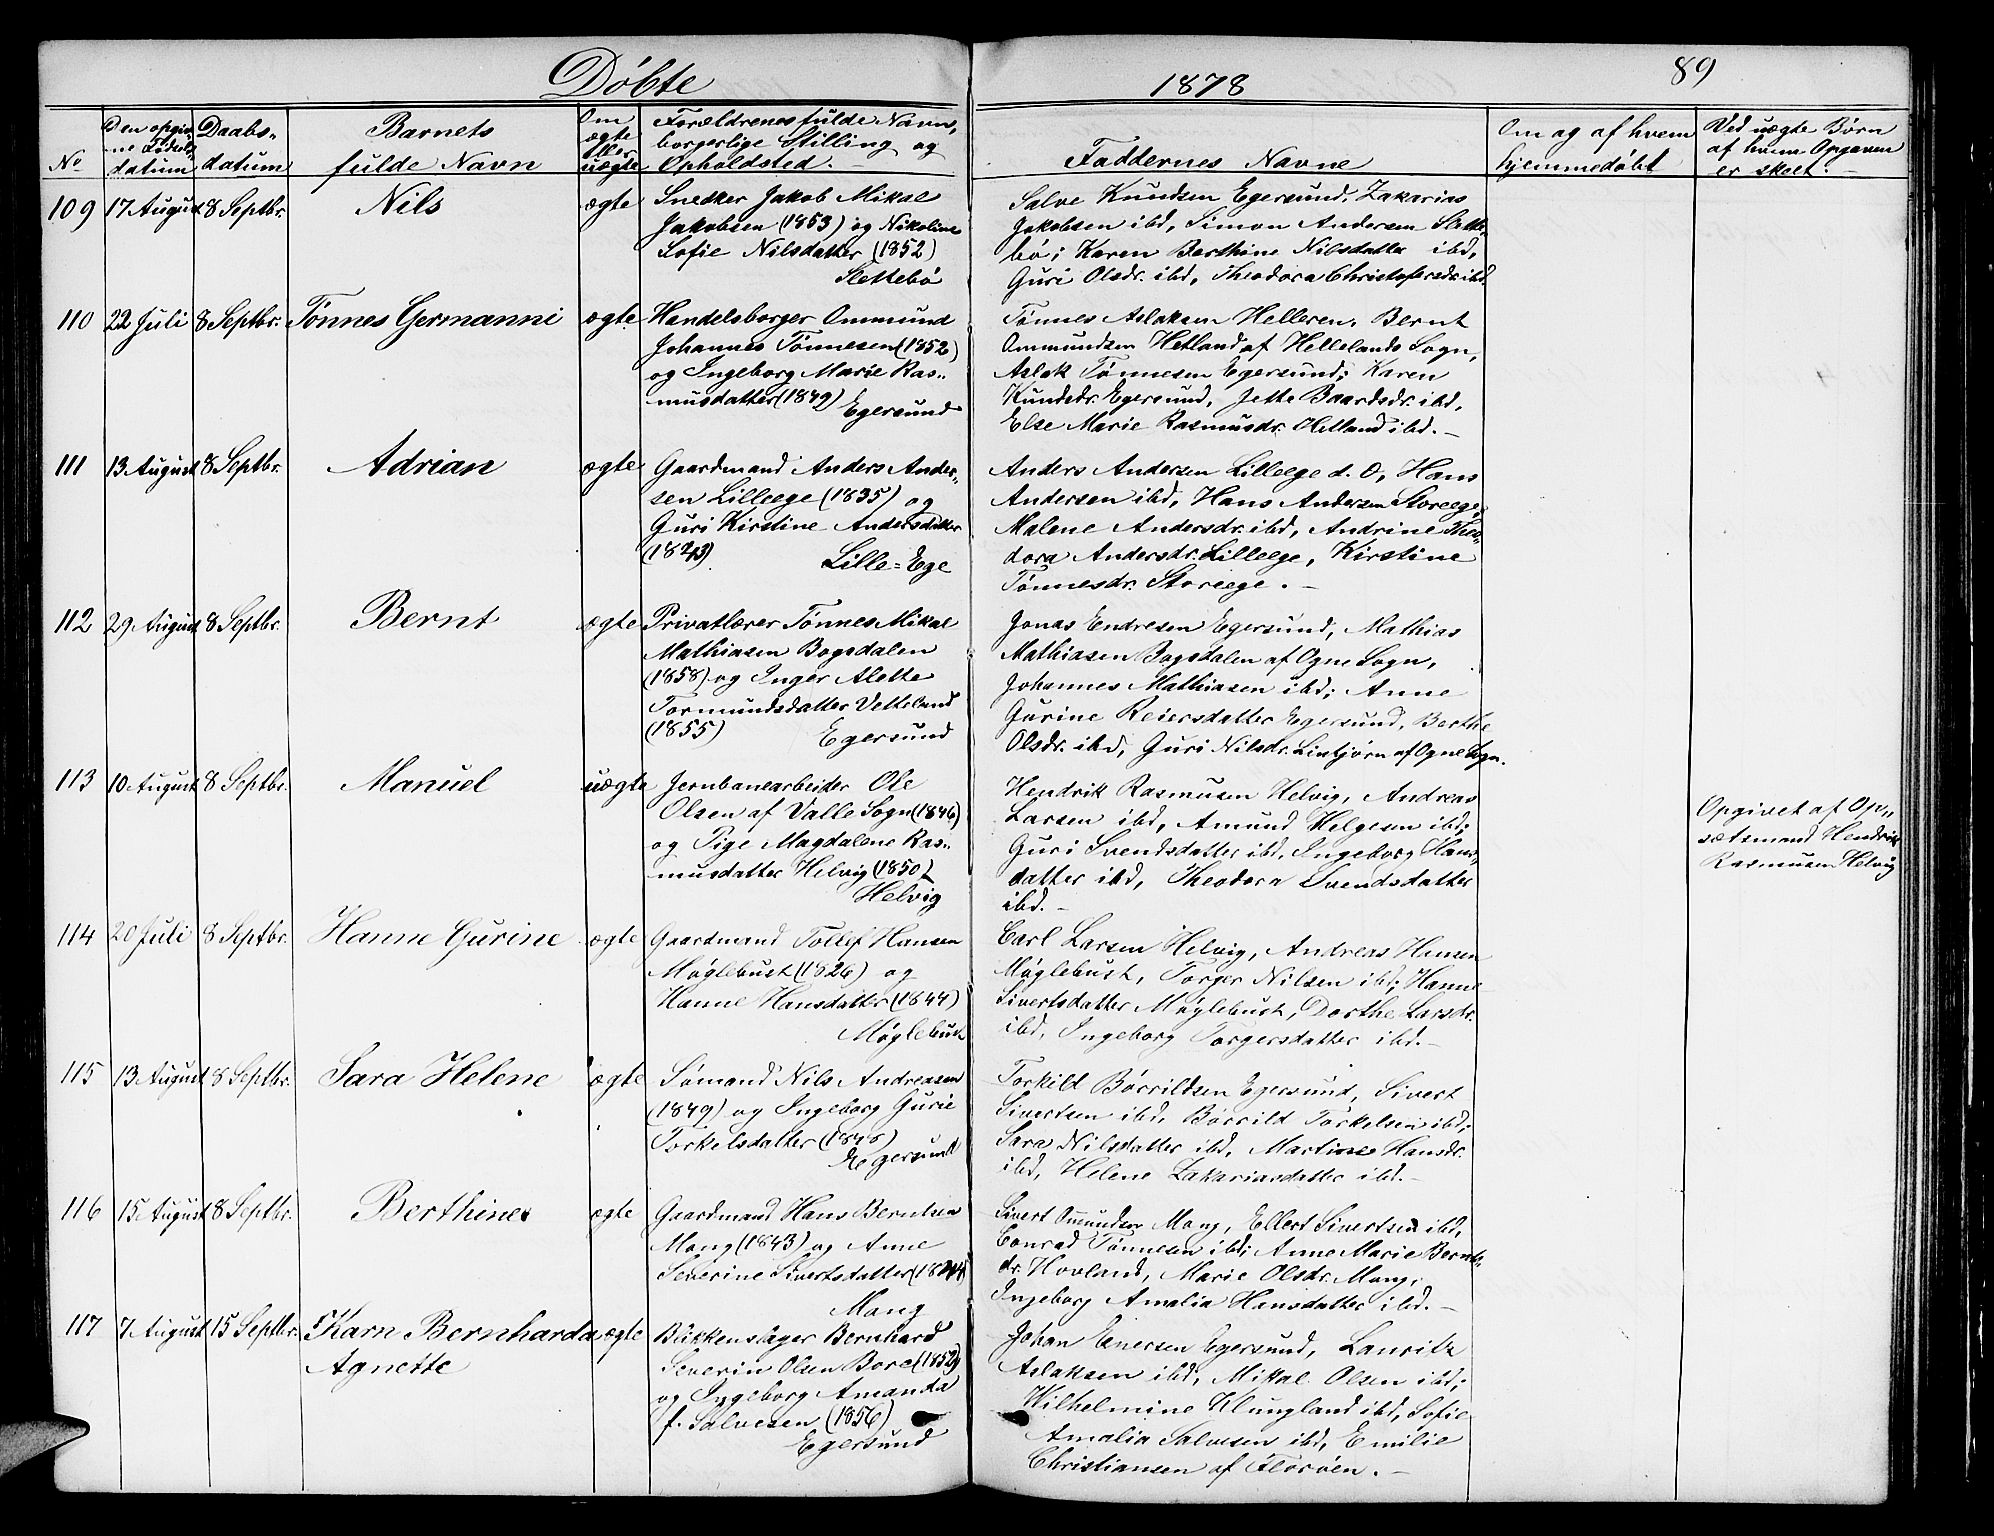 Döbte
1878
89
No
Den opgiv-
ne Fødsels
datum
Daabs-
datum
Barnets
fulde Navn
Om
ægte
eller
uægte
Forældrenes fulde Navn,
borgerlige Stilling og
Opholdsted. —
Faddernes Navne
Om og af hvem
hjemmedøbt
Ved uægte Børn
af hvem Opgaven
er skeet. —
109 17 August 8 Septbr. Nils ægte
Snedker Jakob Mikal
Jakobsen (1853) og Nikoline
Sofie Nilsdatter (1852)
Slettebö
Salve Knudsen Egersund, Zakarias
Jakobsen ibd, Simon Andersen Slette-
bö; Karen Berthine Nilsdatter ibd,
Guri Olsdr. ibd, Theodora Christofersdr. ibd.
110 22 Juli 8 Septbr. Tönnes Germanni ægte
Handelsborger Ommund
Johannes Tönnesen (1852)
og Ingeborg Marie Ras-
musdatter (1849) Egersund
Tönnes Aslaksen Helleren, Bernt
Ommundsen Hetland af Hellelands Sogn,
Aslak Tönnesen Egersund; Karen
Knudsdr. Egersund, Jette Baardsdr. ibd,
Else Marie Rasmusdr. Hetland ibd. —
111 13 August 8 Septbr. Adrian ægte
Gaardmand Anders Ander-
sen Lilleege (1835) og
Guri Kirstine Andersdatter
(1843). Lille-Ege
Anders Andersen Lilleege d. O, Hans
Andersen ibd, Hans Andersen Storeege;
Malene Andersdr. ibd, Andrine Theo-
dora Andersdr. Lilleege, Kirstine
Tönnesdr. Storeege. —
112 29 August 8 Septbr. Bernt ægte
Privatlærer Tönnes Mikal
Mathiasen Bogsdalen
(1858) og Inger Alette
Tormundsdatter Vetteland
(1855) Egersund
Jonas Endresen Egersund, Mathias
Mathiasen Bogsdalen af Ogne Sogn,
Johannes Mathiasen ibd; Anne
Gurine Reiersdatter Egersund, Berthe
Olsdr. ibd, Guri Nilsdr. Lintjørn af Ogne Sogn.
113 10 August 8 Septbr. Manuel uægte
Jernbanearbeider Ole
Olsen af Valle Sogn (1846)
og Pige Magdalene Ras-
musdatter Helvig (1850)
Helvig
Hendrik Rasmusen Helvig, Andreas
Larsen ibd, Amund Helgesen ibd;
Guri Svendsdatter ibd, Ingeborg Hans-
datter ibd, Theodora Svendsdatter
ibd. —
Opgivet af Op-
sætsmand Hendrik
Rasmusen Helvig
114 20 Juli 8 Septbr. Hanne Gurine ægte
Gaardmand Tollef Hansen
Möglebust (1826) og
Hanne Hansdatter (1844)
Möglebust
Carl Larsen Helvig, Andreas Hansen
Möglebust, Torger Nilsen ibd; Hanne
Sivertsdatter Möglebust, Dorthe Larsdr.
ibd, Ingeborg Torgersdatter ibd. —
115 13 August 8 Septbr. Sara Helene ægte
Sömand Nils Andreasen
(1849) og Ingeborg Gurie
Torkelsdatter (1848)
Egersund
Torkild Börrildsen Egersund, Sivert
Sivertsen ibd, Börrild Torkelsen ibd;
Sara Nilsdatter ibd, Martine Hansdr.
ibd, Helene Zakariasdatter ibd. —
116 15 August 8 Septbr. Berthines ægte
Gaardmand Hans Berntsen
Mong (1843) og Anne
Severine Sivertsdatter
Mong
Sivert Omundsen Mong, Ellert Sivertsen ibd,
Conrad Tönnesen ibd; Anne Marie Bernts-
dr. Hovland, Marie Olsdr. Mong,
Ingeborg Amalia Hansdatter ibd. —
117 7 August 15 Septbr. Karn Bernharda ægte
Agnette
Bökkersvger Bernhard
Severin Olsen Bore (1852)
og Ingeborg Amanda
f. Salvesen (1856)
Egersund
Johan Enersen Egersund, Lauritz
Aslaksen ibd, Mikal Olsen ibd;
Wilhelmine Klungland ibd, Sofie
Amalia Salvesen ibd, Emilie
Christiansen af Florøen. —